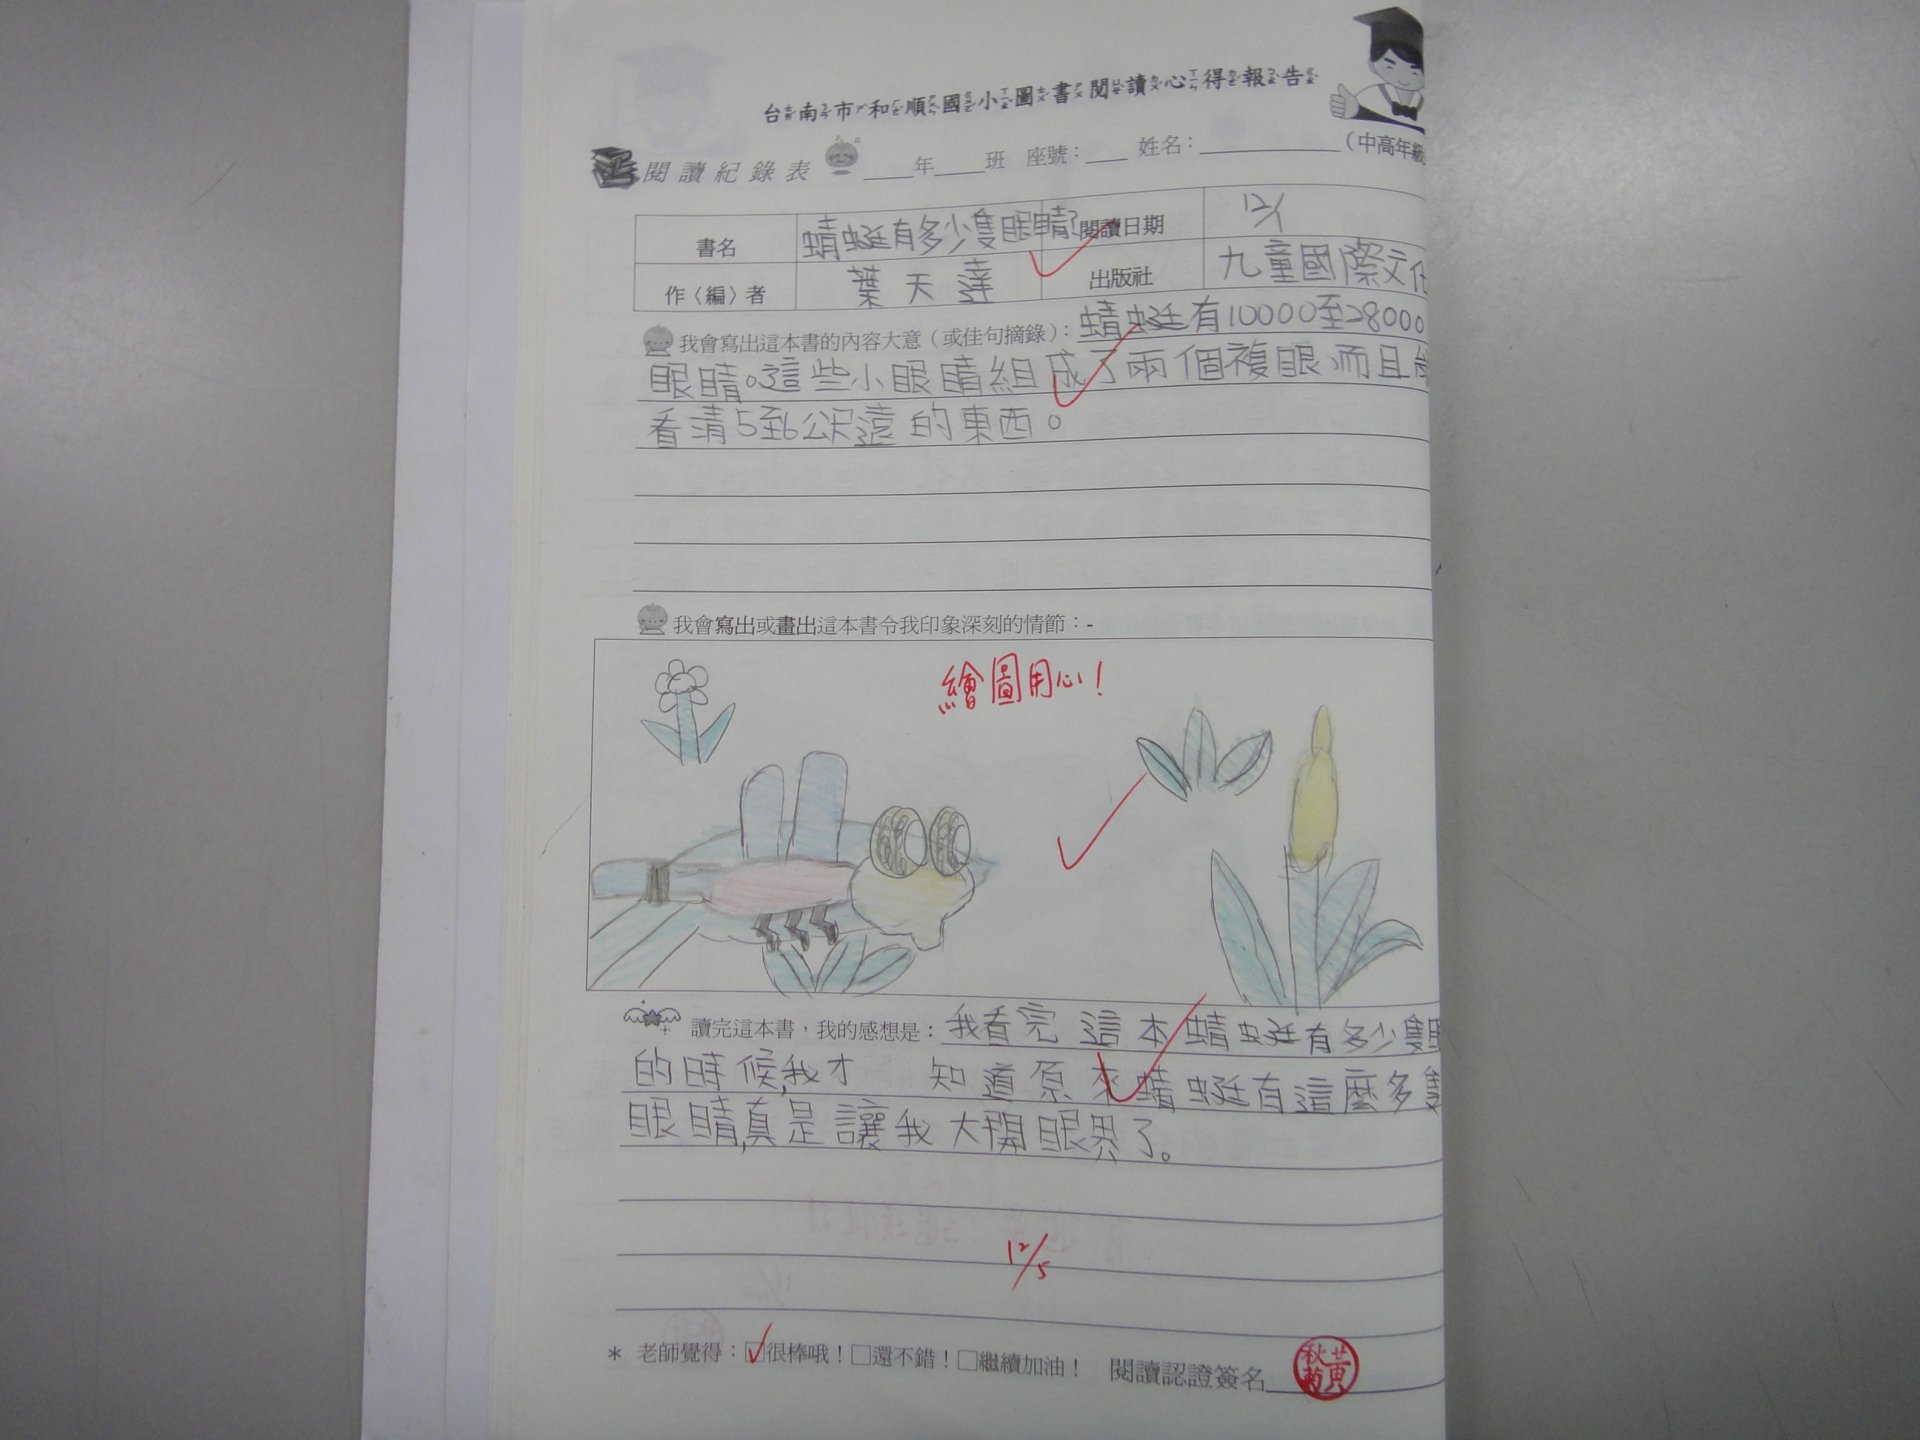 台南市和順國小圖書閱讀心得報告
閱讀紀錄表 ____年____班 座號：____ 姓名：____________（中高年級
書名 蜻蜓有多少隻眼睛? 閱讀日期 12/1
作〈編〉者 葉天達 出版社 九童國際文化
我會寫出這本書的內容大意（或佳句摘錄）：蜻蜓有10000至28000
眼睛。這些小眼睛組成了兩個複眼,而且能
看清5到6公尺遠的東西。
我會寫出或畫出這本書令我印象深刻的情節：-
繪圖用心！
讀完這本書，我的感想是：我看完這本蜻蜓有多少隻眼
的時候,我才 知道原來蜻蜓有這麼多隻
眼睛,真是讓我大開眼界了。
12/5
* 老師覺得：☑很棒哦！□還不錯！□繼續加油！ 閱讀認證簽名
黃秋菊